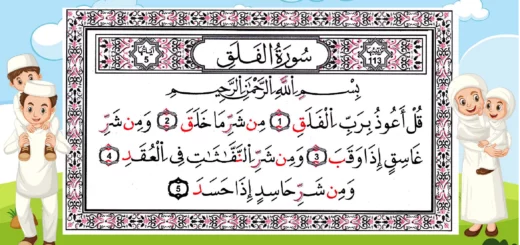 سُورَةُ الْفَلَقِ
بِسْمِ اللَّهِ الرَّحْمَٰنِ الرَّحِيمِ
قُلْ أَعُوذُ بِرَبِّ الْفَلَقِ 1 مِن شَرِّ مَا خَلَقَ 2 وَمِن شَرِّ
غَاسِقٍ إِذَا وَقَبَ 3 وَمِن شَرِّ النَّفَّاثَاتِ فِي الْعُقَدِ 4
وَمِن شَرِّ حَاسِدٍ إِذَا حَسَدَ 5
113
5